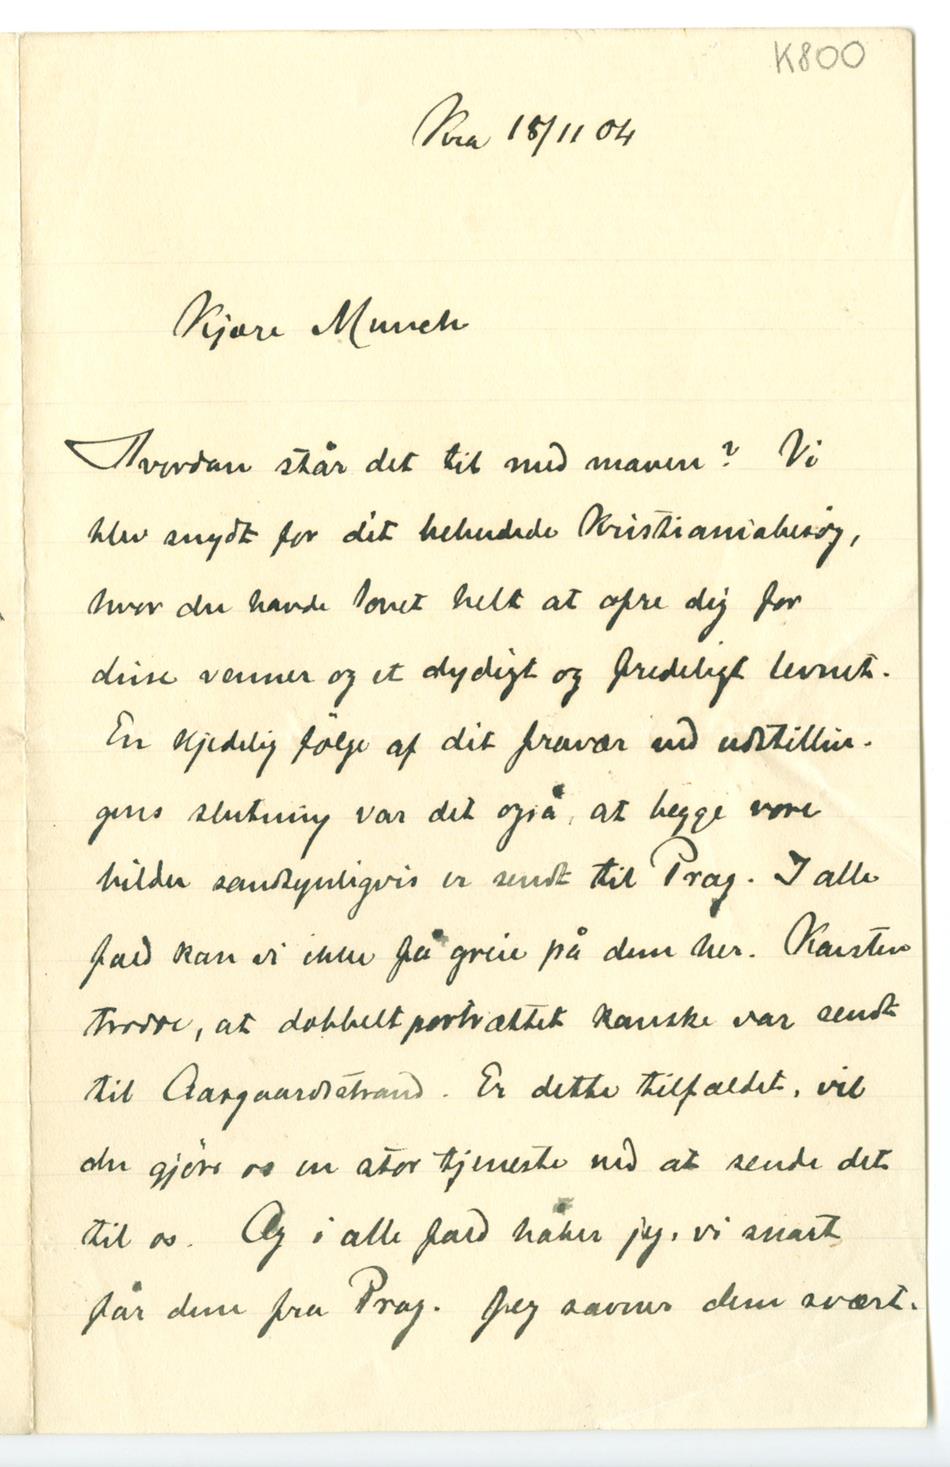 K800
Kra 18/11 04
Kjære Munch
Hvordan står det til med maven? Vi
blev snydt for dit bebudede Kristianiabesög,
hvor du havde lovet helt at ofre dig for
disse venner og et dydigt og fredeligt levnet.
En kjedelig fölge af dit fravær ved udstillin-
gens slutning var det også, at begge vore
bilder sandsynligvis er sendt til Prag. I alle
fald kan vi ikke få greie på dem her. Karsten
trodde, at dobbeltportrættet kanske var sendt
til Aasgaardstrand. Er dette tilfældet, vil
du gjöre os en stor tjeneste ved at sende det
til os. Og i alle fald håber jeg, vi snart
får dem fra Prag. Jeg savner dem svært.